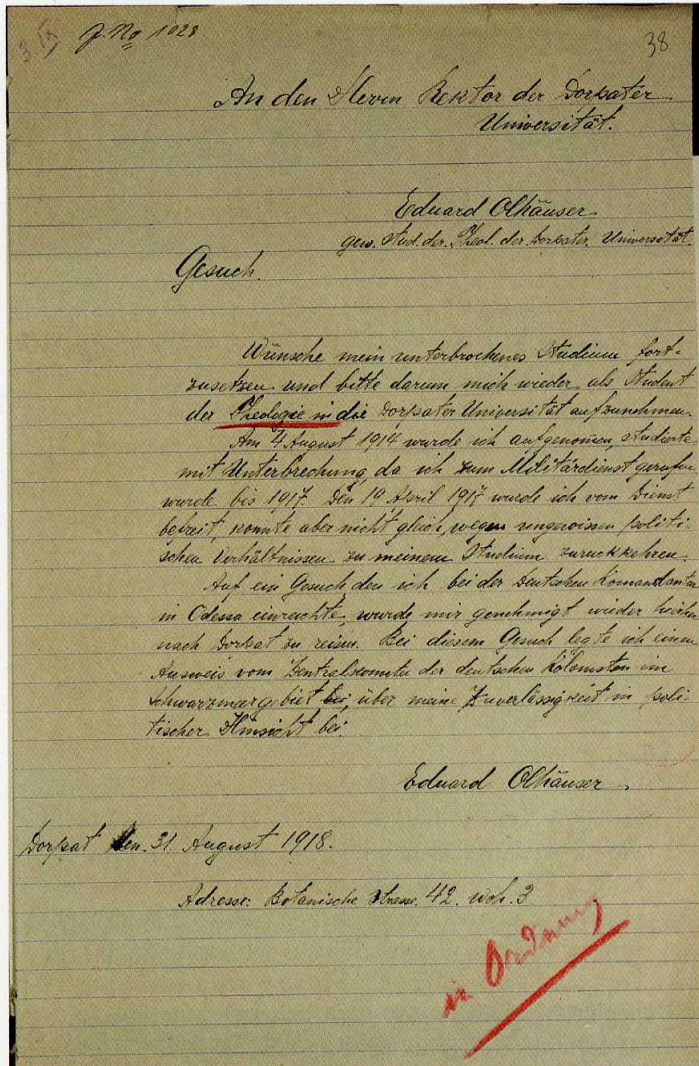 3. IX
J. No 1028
38
An den Herrn Rektor der Dorpater
Universität.
Eduard Olhäuser
gew. stud. der Theol. der Dorpater Universität.
Gesuch.
Wünsche mein unterbrochenes Studium fort-
zusetzen und bitte darum mich wieder als Student
der Theologie in die Dorpater Universität aufzunehmen.
Am 4 August 1914 wurde ich aufgenomen, studierte
mit Unterbrechung, da ich zum Militärdienst gerufen
wurde bis 1917. Den 19 April 1917 wurde ich vom Dienst
befreit, konnte aber nicht gleich, wegen ungewissen politi-
schen Verhältnissen zu meinem Studium zurückkehren.
Auf ein Gesuch, den ich bei der Deutschen Komandantur
in Odessa einreichte, wurde mir genehmigt wieder hierher
nach Dorpat zu reisen. Bei diesem Gesuch legte ich einen
Ausweis vom Zentralkomite der deutschen Kolonisten im
Schwarzmeergebiet bei, über meine Zuverlässigkeit in poli-
tischer Hinsicht bei.
Eduard Olhäuser.
Dorpat den. 31. August 1918.
Adresse: Botanische Strasse. 42. woh. 3
in Ordnung